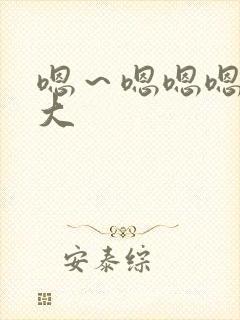 嗯~嗯嗯嗯
大
安泰综